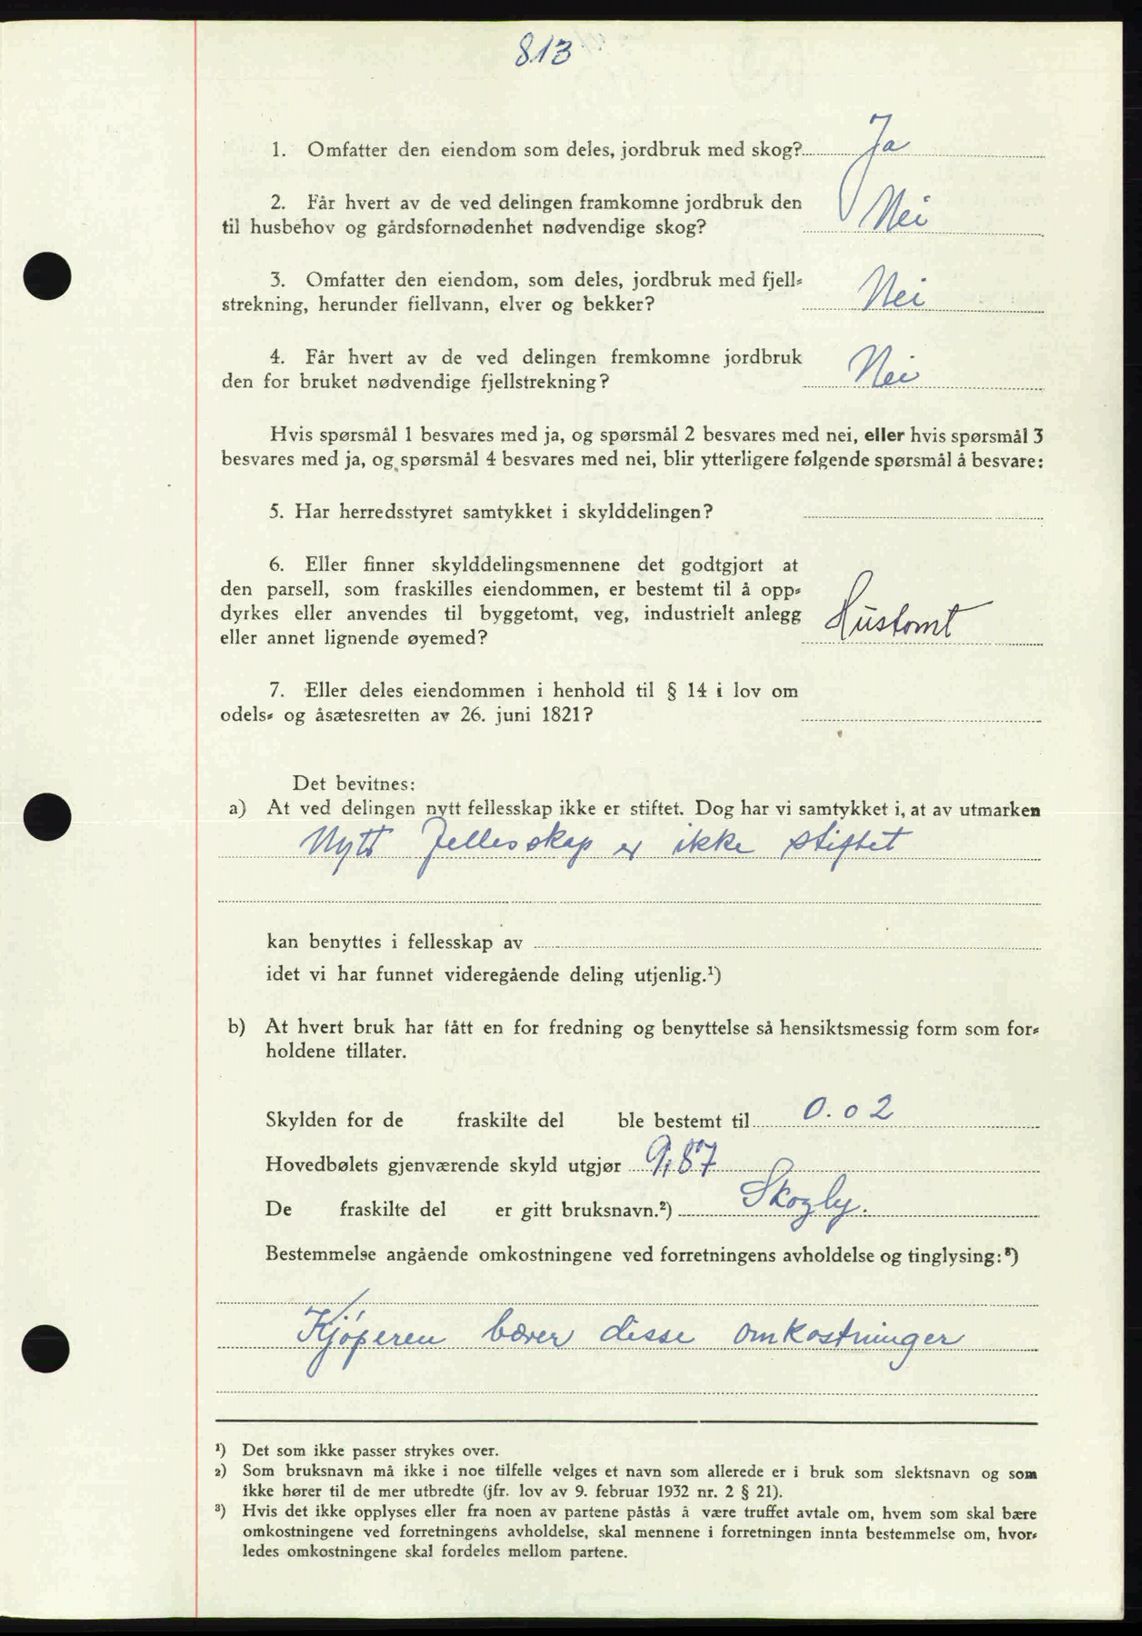 813
1. Omfatter den eiendom som deles, jordbruk med skog? Ja
2. Får hvert av de ved delingen framkomne jordbruk den
til husbehov og gårdsfornødenhet nødvendige skog? Nei
3. Omfatter den eiendom, som deles, jordbruk med fjell-
strekning, herunder fiellvann, elver og bekker? Nei
4. Får hvert av de ved delingen fremkomne jordbruk
den for bruket nødvendige fjellstrekning? Nei
Hvis spørsmål 1 besvares med ja, og spørsmål 2 besvares med nei, eller hvis spørsmål 3
besvares med ja, og spørsmål 4 besvares med nei, blir ytterligere følgende spørsmål å besvare:
5. Har herredsstyret samtykket i skylddelingen?
6. Eller finner skylddelingsmennene det godtgjort at
den parsell, som fraskilles eiendommen, er bestemt til å opp-
dyrkes eller anvendes til byggetomt, veg, industrielt anlegg
eller annet lignende øyemed? Hustomt
7. Eller deles eiendommen i henhold til § 14 i lov om
odels- og åsætesretten av 26. juni 1821?
Det bevitnes:
a) At ved delingen nytt fellesskap ikke er stiftet. Dog har vi samtykket i, at av utmarken
Nytt fellesskap er ikke stiftet
kan benyttes i fellesskap av
idet vi har funnet videregående deling utjenlig.¹)
b) At hvert bruk har fått en for fredning og benyttelse så hensiktsmessig form som for-
holdene tillater.
Skylden for de fraskilte del ble bestemt til 0.02
Hovedbølets gjenværende skyld utgjør 9,87
De fraskilte del er gitt bruksnavn.²) Skogly.
Bestemmelse angående omkostningene ved forretningens avholdelse og tinglysing:³)
Kjøperen bærer disse omkostninger
¹) Det som ikke passer strykes over.
²) Som bruksnavn må ikke i noe tilfelle velges et navn som allerede er i bruk som slektsnavn og som
ikke hører til de mer utbredte (jfr. lov av 9. februar 1932 nr. 2 § 21).
³) Hvis det ikke opplyses eller fra noen av partene påstås å være truffet avtale om, hvem som skal bære
omkostningene ved forretningens avholdelse, skal mennene i forretningen innta bestemmelse om, hvor-
ledes omkostningene skal fordeles mellom partene.